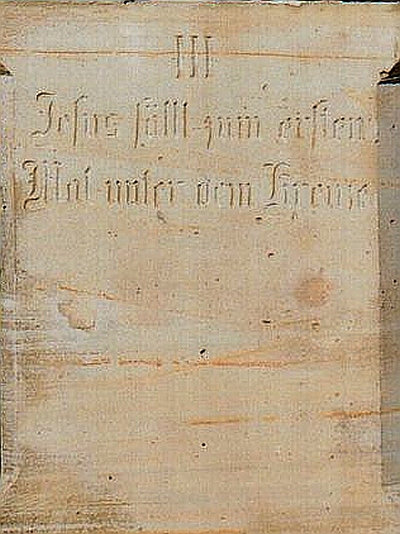 III
Jesus fällt zum ersten
Mal unter dem Kreuze